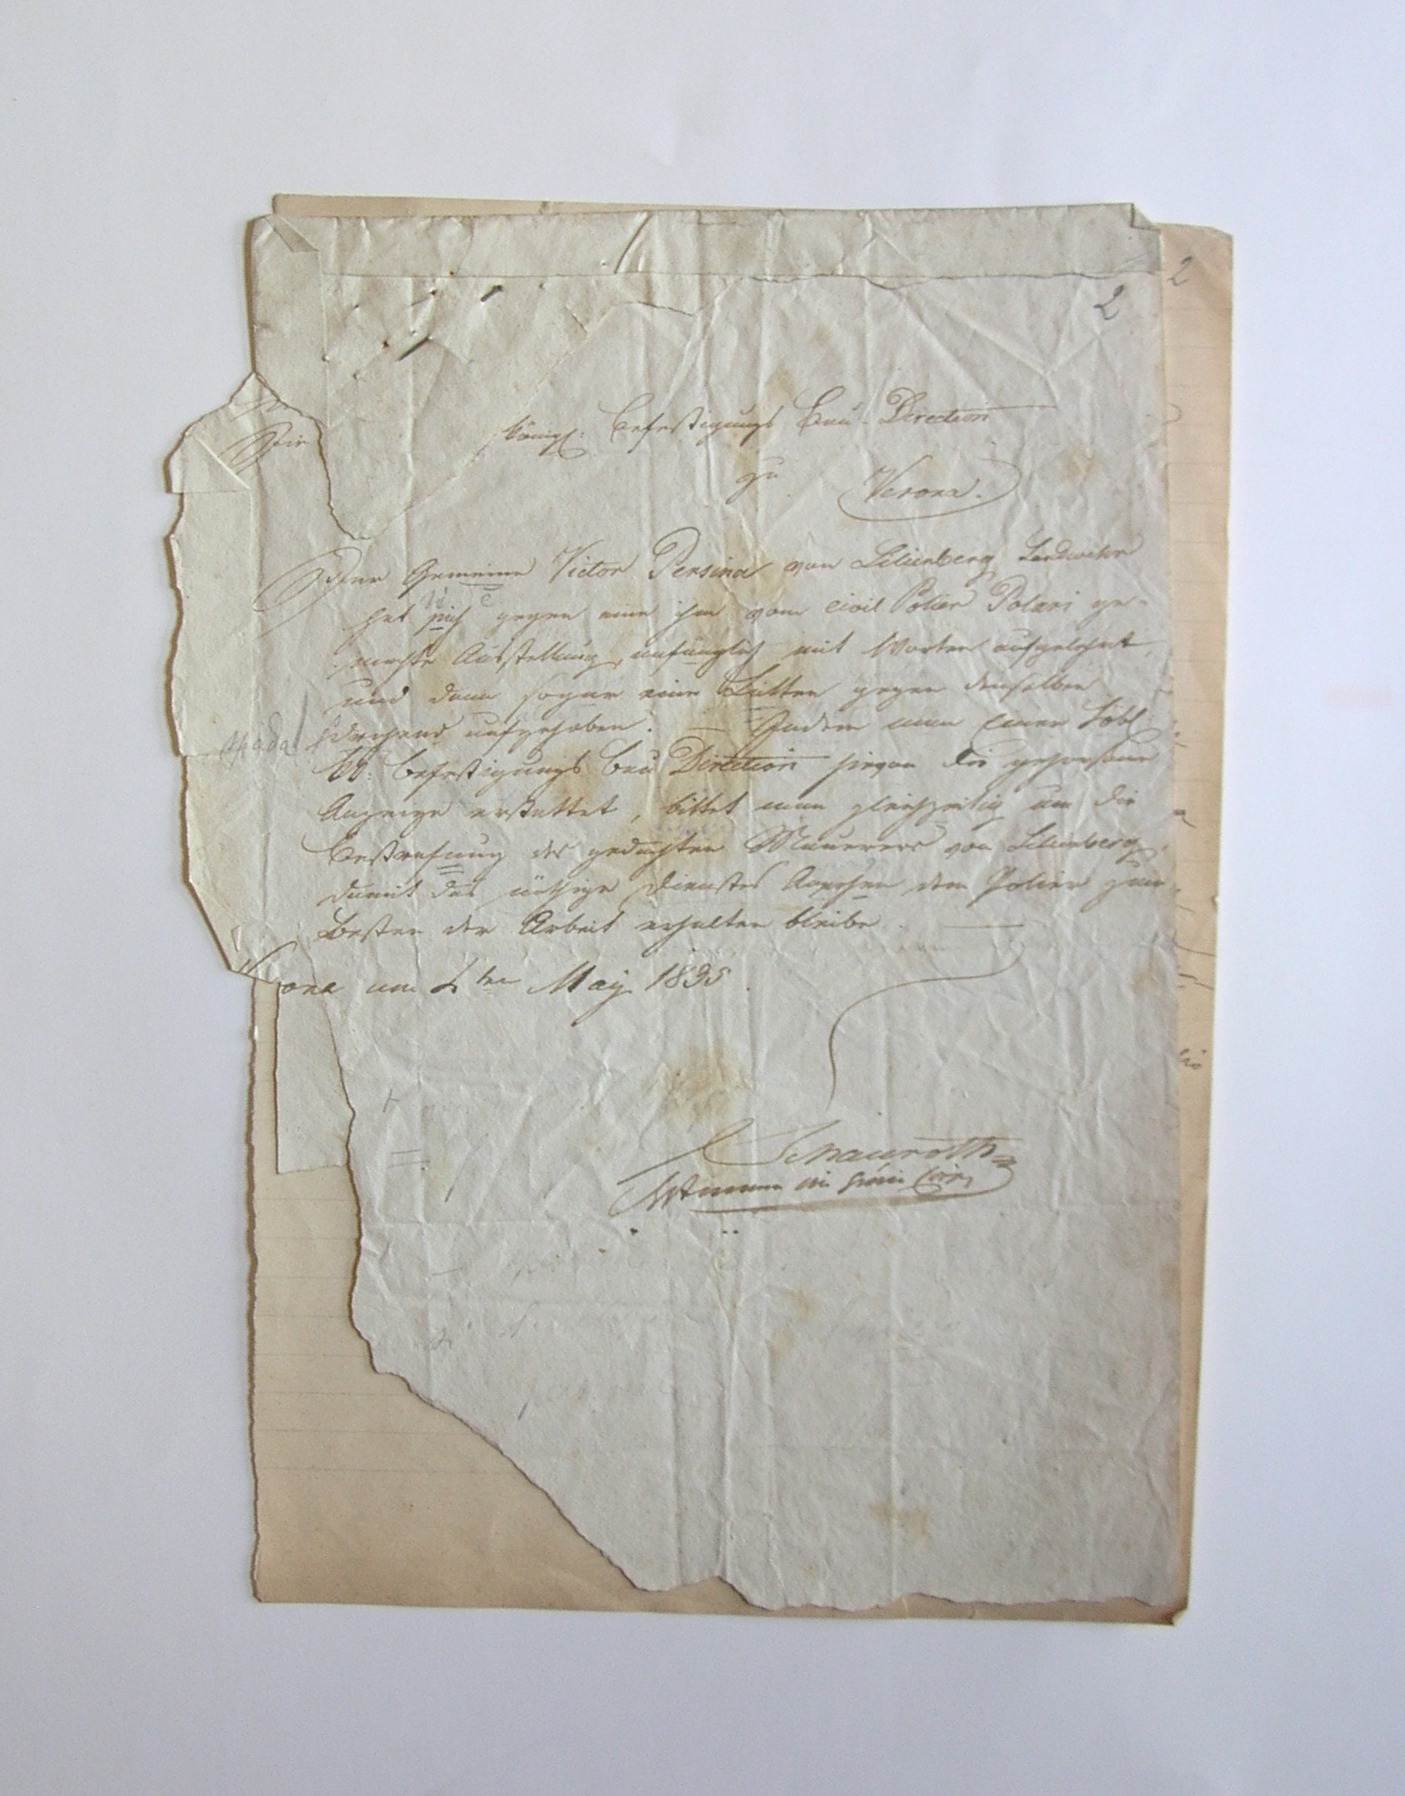 2
2
Königl: Befestigungs Bau-Direction
zu Verona.
Der Gemeine Victor Persina von Lilienberg Landwehr
hat sich gegen eine ihm vom civil Polier Polari ge-
machte Ausstellung, anfänglich mit Worten aufgelehnt,
und dann sogar eine Latten gegen denselben
drohend aufgehoben. — Indem man Einer Löbl:
Befestigungs Bau Direction hievon die gehorsame
Anzeige erstattet, bittet man gleichzeitig um die
Bestrafung des gedachten Maurers von Lilienberg,
damit das nöthige Dienstes Ansehen dem Polier zum
Besten der Arbeit erhalten bleibe.
ona am 2ten May 1835.
Schauroth